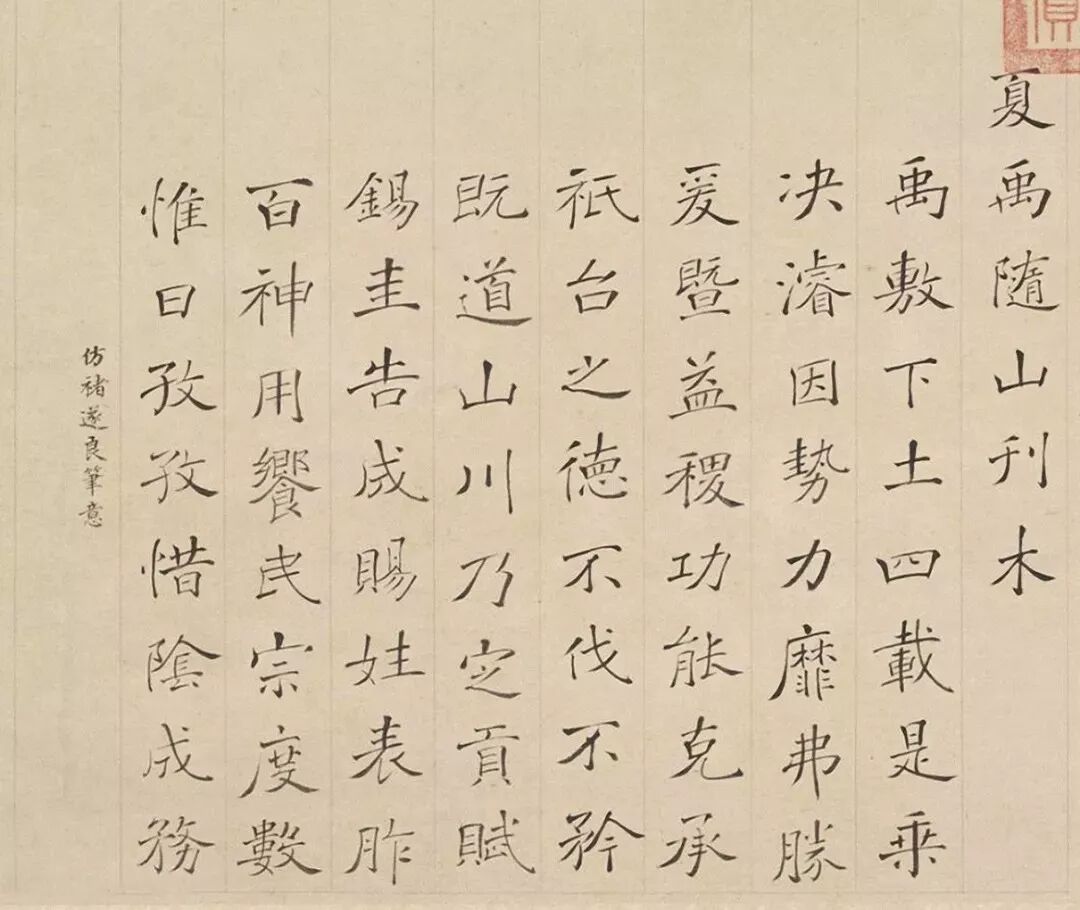 夏禹随山刊木
禹敷下土四載是乗
决濬因勢力靡弗勝
爰暨益稷功能克承
祇台之德不伐不矜
既道山川乃定貢賦
錫圭告成賜姓表胙
百神用饗民宗度數
惟日孜孜惜陰成務
仿褚遂良筆意